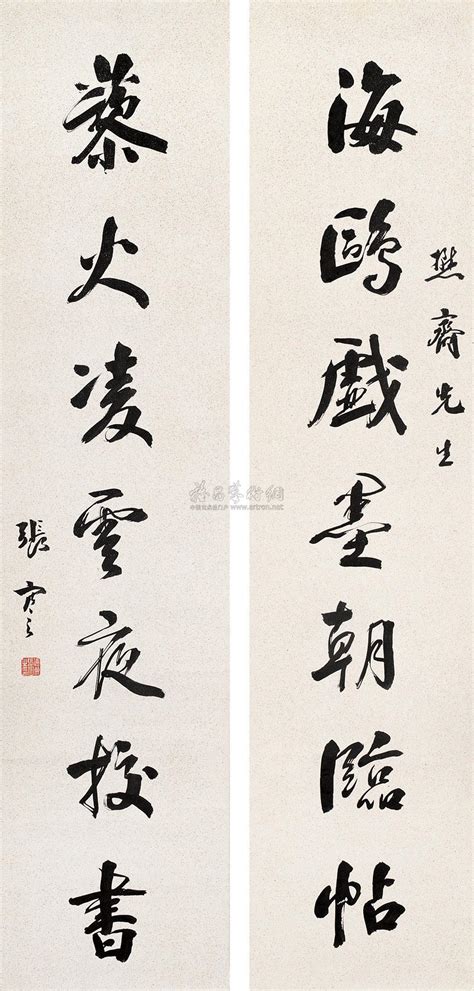 海鷗戲墨朝臨帖
懋齋先生
藜火凌雲夜校書
張
雅昌藝術網
www.artron.net